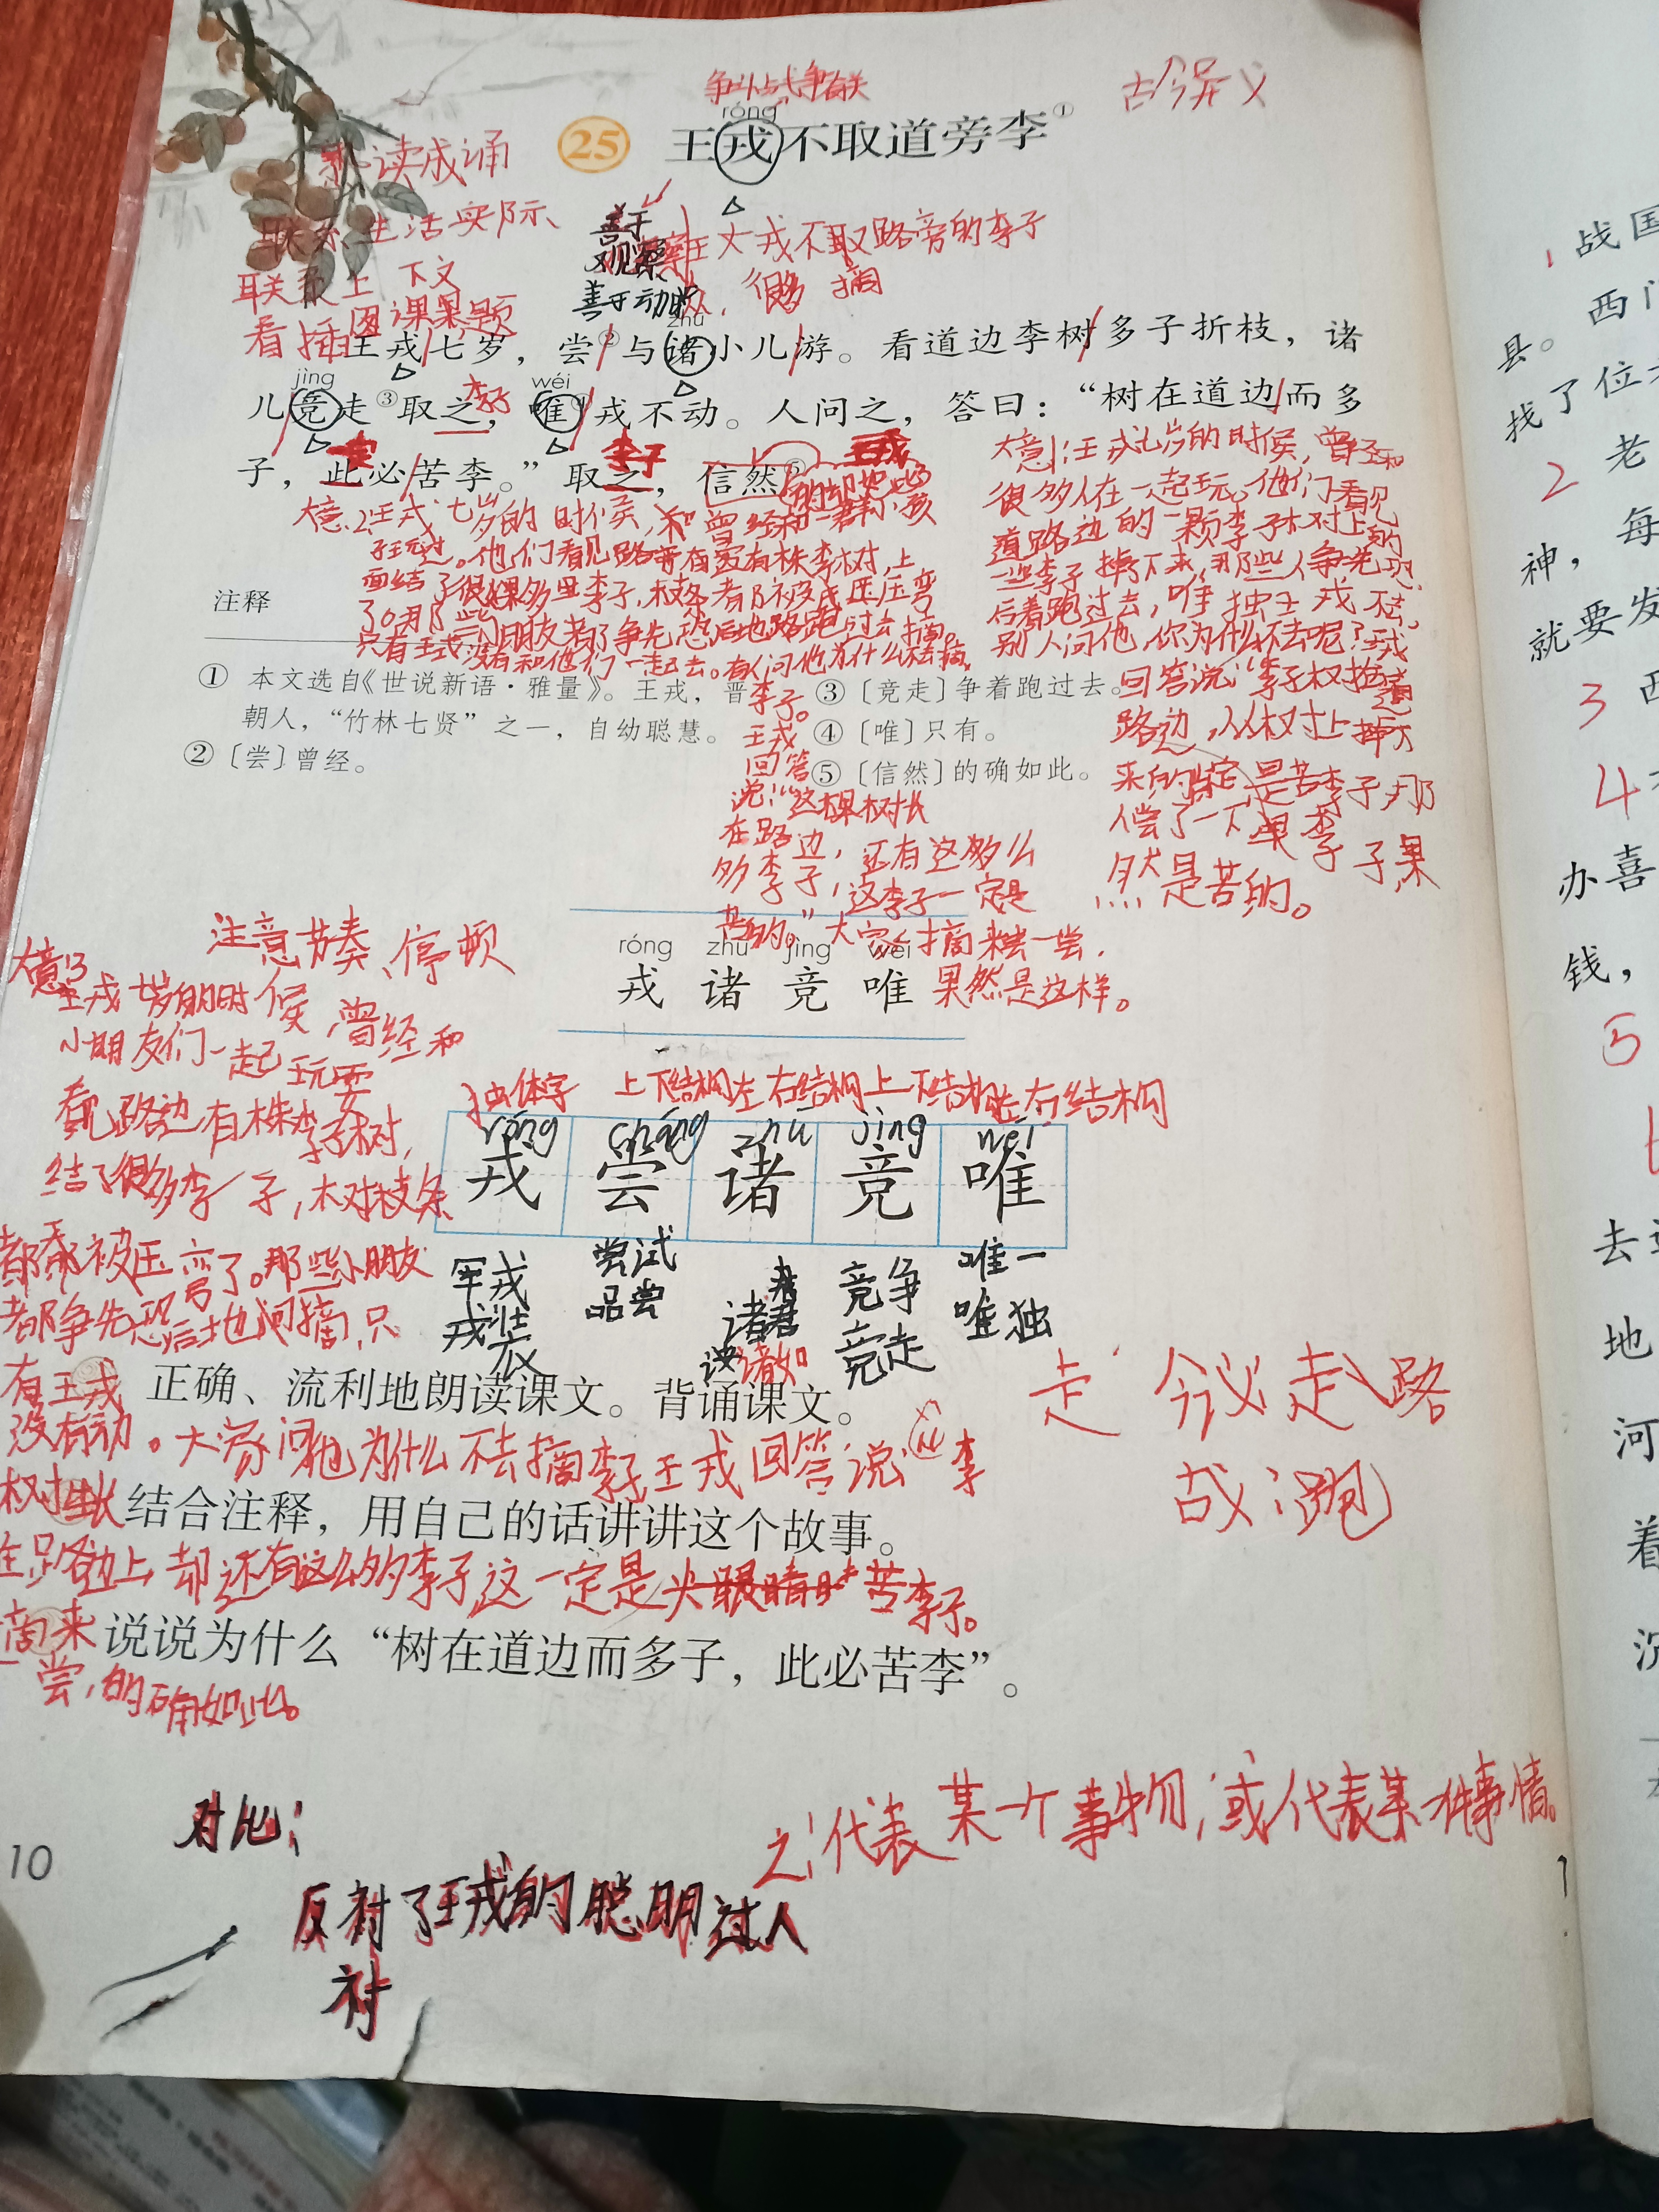 争斗与战争有关
古今异义
róng
25 王戎不取道旁李①
熟读成诵
联系生活实际、
联系上下文
看插图课果题
善于
观察
善于动脑
王戎不取路旁的李子
很多 摘
zhū
王戎七岁，尝②与诸小儿游。看道边李树多子折枝，诸
jìng wéi
儿竞走③取之，唯④戎不动。人问之，答曰：“树在道边而多
李子
子，此必苦李。”取之，信然⑤。
李子
大意1：王戎七岁的时候，曾经和
很多人在一起玩。他们看见
道路边的一颗李子树上的
一些李子掉下来，那些人争先恐
后着跑过去，唯独王戎不去，
别人问他，你为什么不去呢？王戎
回答说：“李子树
路边，从树上掉下
来的肯定是苦李子，那
人尝了一下李子，果
然是苦的。
大意2：王戎七岁的时候，曾经和一群小孩
子玩过。他们看见路旁有株李树，上
面结了很多李子，枝条都被压弯
了。那些小朋友都争先恐后地跑过去摘。
只有王戎没有和他们一起去。有人问他为什么不去摘
李子。
王戎
回答
说：“这棵树长
在路边，还有这么
多李子，这李子一定是
苦的。”大家摘来一尝，
果然是这样。
注释
① 本文选自《世说新语·雅量》。王戎，晋
朝人，“竹林七贤”之一，自幼聪慧。
② 〔尝〕曾经。
③ 〔竞走〕争着跑过去。
④ 〔唯〕只有。
⑤ 〔信然〕的确如此。
注意节奏、停顿
róng zhū jìng wéi
戎 诸 竞 唯
独体字 上下结构 左右结构 上下结构 左右结构
róng cháng zhū jìng wéi
戎 尝 诸 竞 唯
军戎 尝试 诸君 竞争 唯一
戎装 品尝 诸如 竞走 唯独
大意3
王戎七岁的时候，曾经和
小朋友们一起玩耍
看见路边有株李子树，
结了很多李子，树枝条
都被压弯了。那些小朋友
都争先恐后地去摘，只
有王戎
没有动。大家问他为什么不去摘李子王戎回答说“李
树生长
在路边上，却还有这么多李子这一定是苦李子。
摘来
一尝，的确如此。
正确、流利地朗读课文。背诵课文。
结合注释，用自己的话讲讲这个故事。
说说为什么“树在道边而多子，此必苦李”。
走 今议走路
古：跑
之：代表某一个事物，或代表某一件事情。
对比：
反衬了王戎的聪明过人
衬
10
1 战国
西门
县。
找了位
2 老
每
神，
就要发
3 西
4
办喜
钱，
5
去
地
河
着
沉